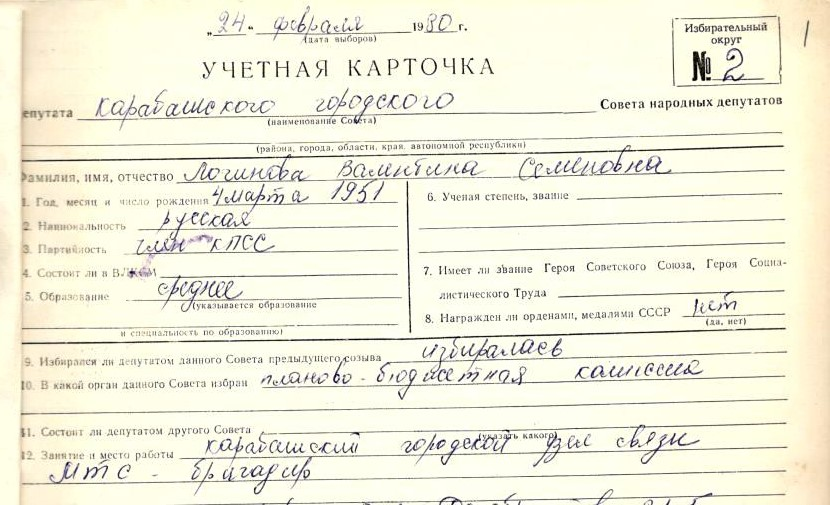 „24“ февраля 1980 г.
(дата выборов)
Избирательный
округ
№ 2
1
УЧЕТНАЯ КАРТОЧКА
депутата Карабашского городского Совета народных депутатов
(наименование Совета)
(района, города, области, края, автономной республики)
Фамилия, имя, отчество Логинова Валентина Семеновна
1. Год, месяц и число рождения 4 марта 1951
2. Национальность русская
3. Партийность член КПСС
4. Состоит ли в ВЛКСМ
5. Образование среднее
(указывается образование
и специальность по образованию)
6. Ученая степень, звание
7. Имеет ли звание Героя Советского Союза, Героя Социа-
листического Труда
8. Награжден ли орденами, медалями СССР нет
(да, нет)
9. Избирался ли депутатом данного Совета предыдущего созыва избиралась
10. В какой орган данного Совета избран планово-бюджетная комиссия
11. Состоит ли депутатом другого Совета
(указать какого)
12. Занятие и место работы Карабашский городской узел связи
МТС - бригадир